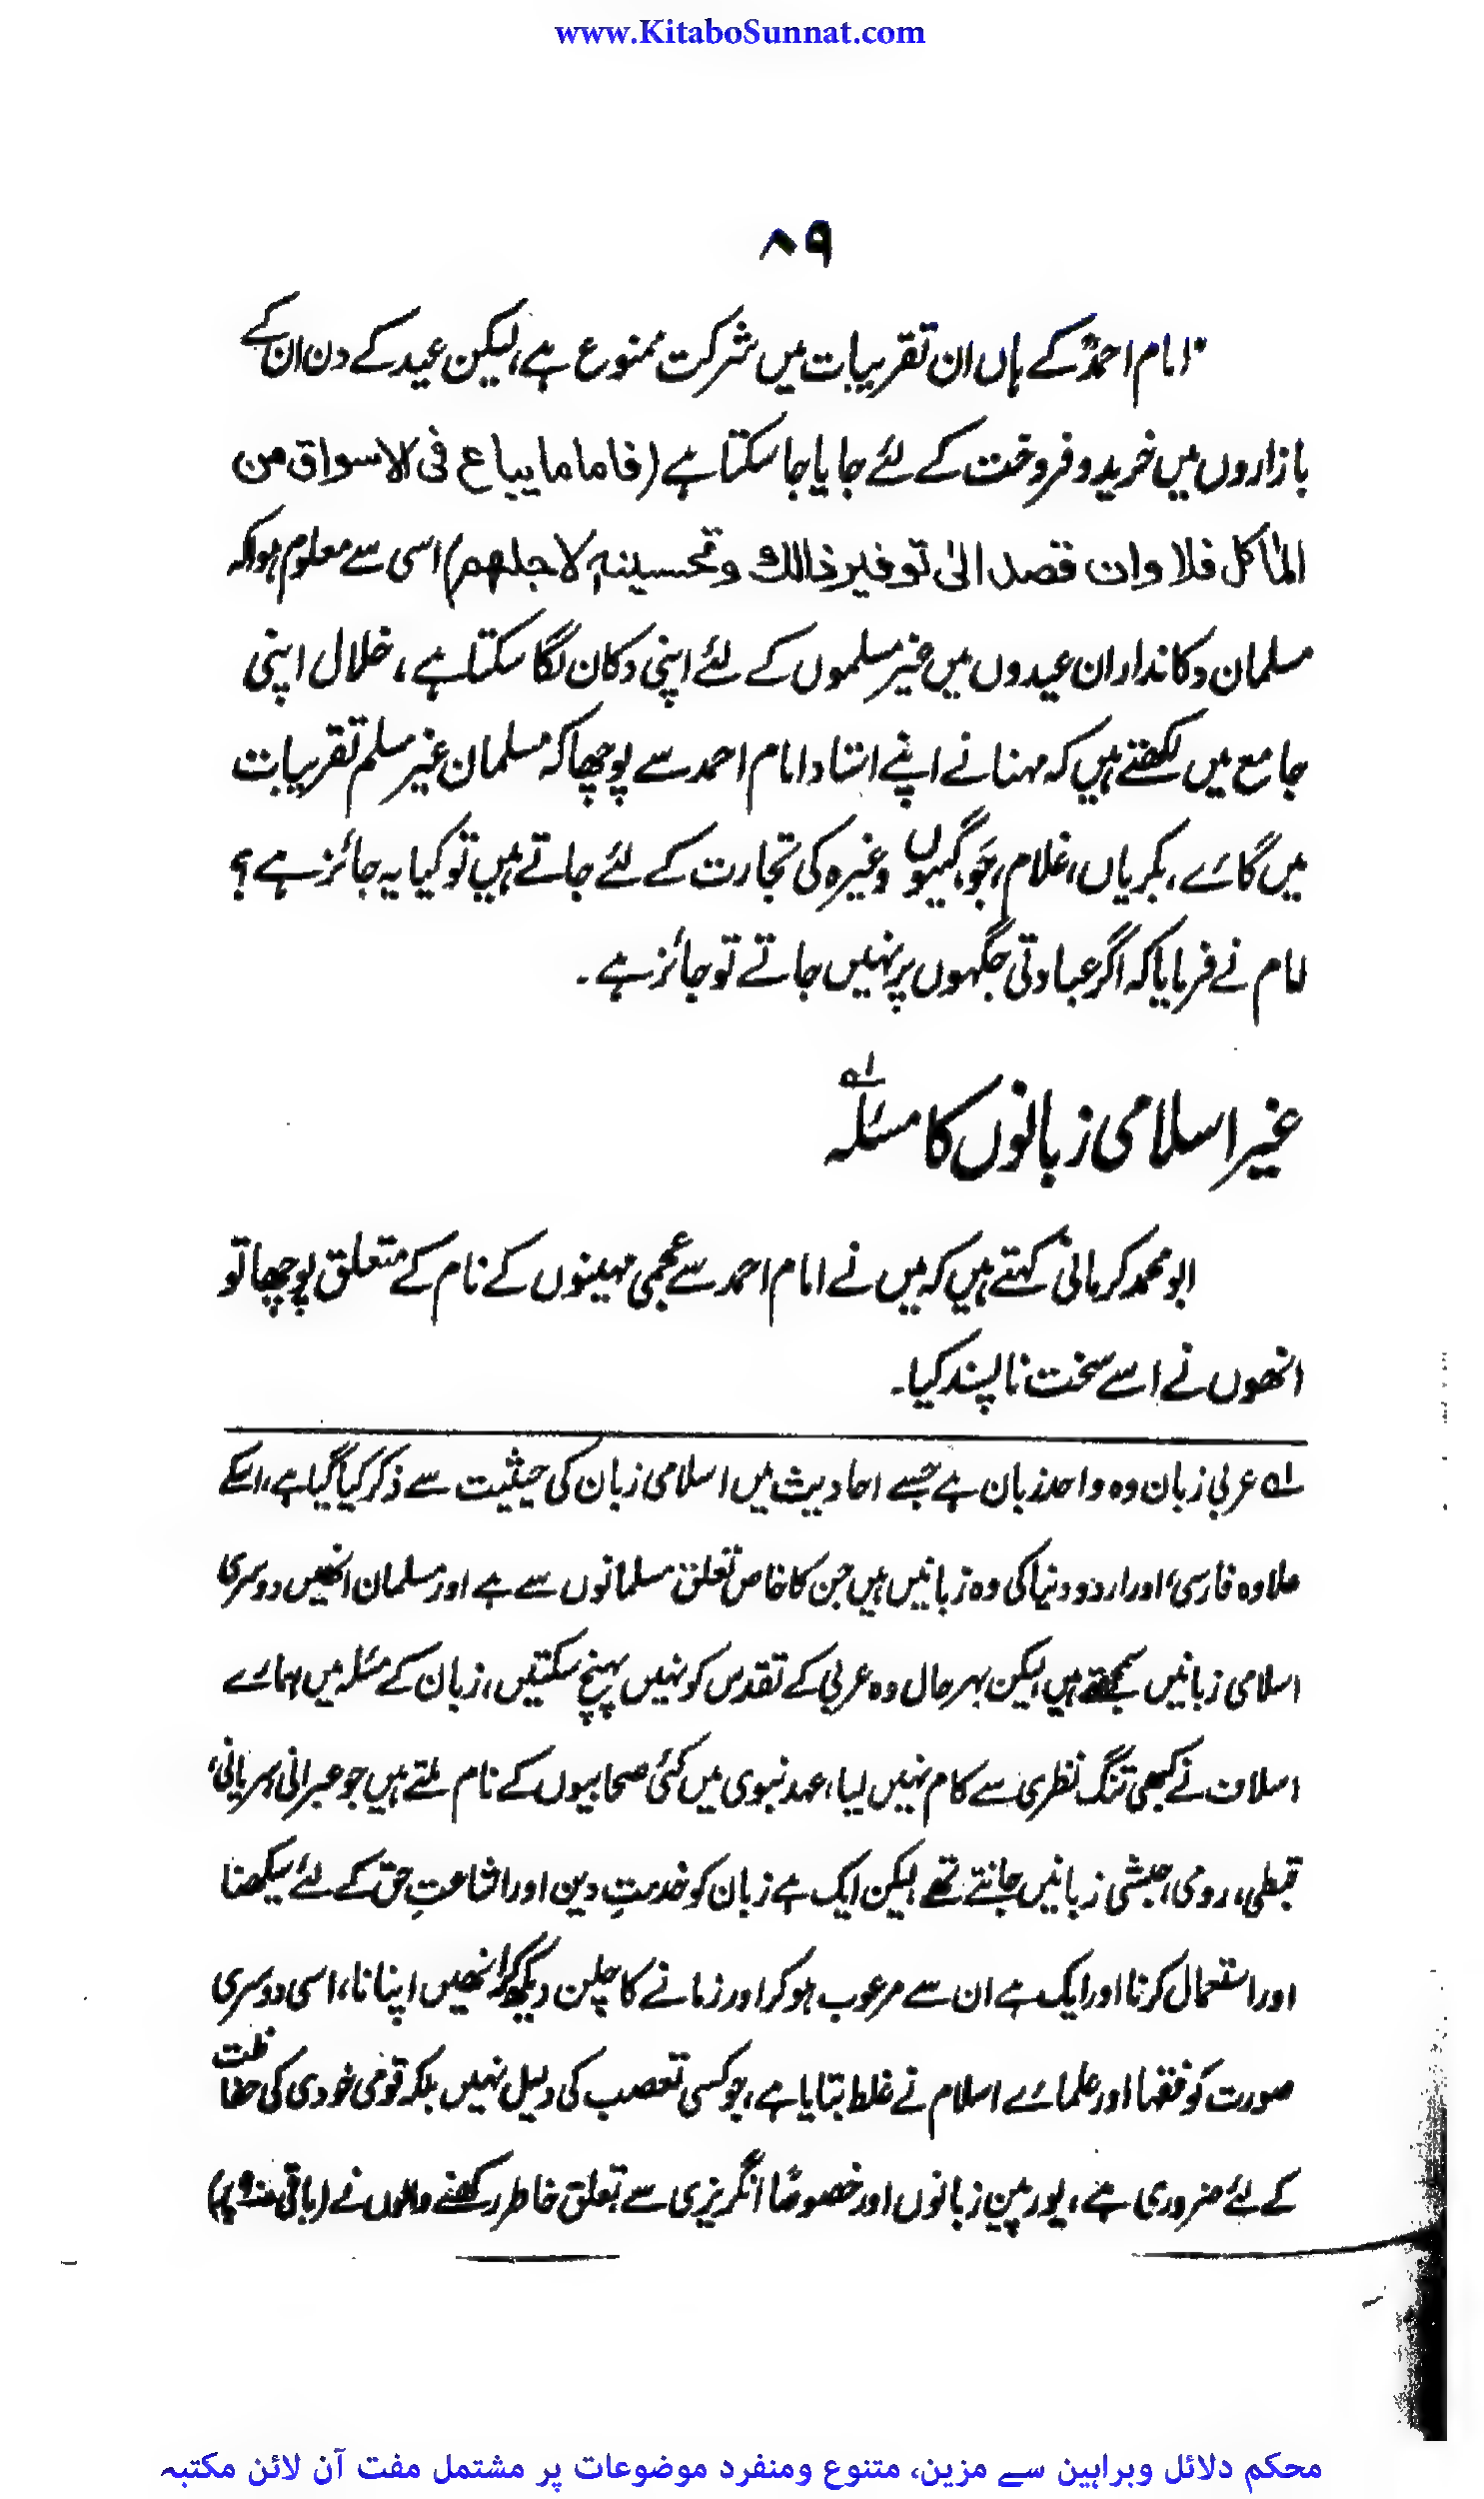 www.KitaboSunnat.com
۸۹
امام احمدؒ کے ہاں ان تقریبات میں شرکت ممنوع ہے، لیکن عید کے دن ان کے
بازاروں میں خرید و فروخت کے لئے جایا جا سکتا ہے (فاما ما يباع فى الاسواق من
المآكل فلا وان قصد الىٰ توفير ذالك وتحسينه لاجلهم) اسی سے معلوم ہوا کہ
مسلمان دکاندار ان عیدوں میں غیر مسلموں کے لئے اپنی دکان لگا سکتا ہے، خلال اپنی
جامع میں لکھتے ہیں کہ مہنا نے اپنے استاد امام احمد سے پوچھا کہ مسلمان غیر مسلم تقریبات
میں گائے، بکریاں، غلام، جَو، گیہوں وغیرہ کی تجارت کے لئے جاتے ہیں تو کیا یہ جائز ہے؟
امام نے فرمایا کہ اگر عبادتی جگہوں پر نہیں جاتے تو جائز ہے۔
غیر اسلامی زبانوں کا مسئلہ لہ
ابو محمد کرمانی کہتے ہیں کہ میں نے امام احمد سے عجمی مہینوں کے نام کے متعلق پوچھا تو
انھوں نے اسے سخت ناپسند کیا۔
لہ عربی زبان وہ واحد زبان ہے جسے احادیث میں اسلامی زبان کی حیثیت سے ذکر کیا گیا ہے، اسکے
علاوہ فارسی، اور اردو دنیا کی وہ زبانیں ہیں جن کا خاص تعلق مسلمانوں سے ہے اور مسلمان انھیں دوسری
اسلامی زبانیں سمجھتے ہیں، لیکن بہر حال وہ عربی کے تقدس کو نہیں پہنچ سکتیں، زبان کے مسئلہ میں ہمارے
اسلاف نے کبھی تنگ نظری سے کام نہیں لیا، عہد نبوی میں کئی صحابیوں کے نام ملتے ہیں جو عبرانی، سریانی،
قبطی، رومی، حبشی زبانیں جانتے تھے، لیکن ایک ہے زبان کو خدمتِ دین اور اشاعتِ حق کے لئے سیکھنا
اور استعمال کرنا اور ایک ہے ان سے مرعوب ہو کر اور زمانے کا چلن دیکھ کر انھیں اپنانا، اسی دوسری
صورت کو فقہا اور علمائے اسلام نے غلط بتایا ہے، جو کسی تعصب کی دلیل نہیں بلکہ قومی خودی کی حفاظت
کے لئے ضروری ہے، یورپین زبانوں اور خصوصًا انگریزی سے تعلق خاطر رکھنے والوں نے (باقی
محکم دلائل وبراہین سے مزین، متنوع ومنفرد موضوعات پر مشتمل مفت آن لائن مکتبہ